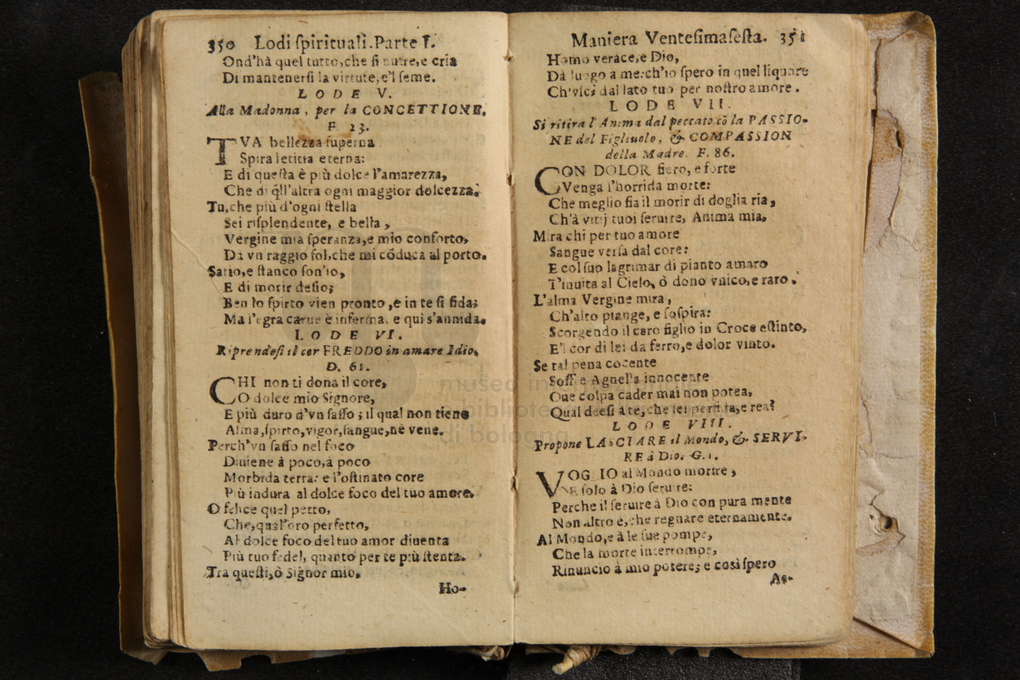 350 Lodi spirituali. Parte I.
Ond'hà quel tutto, che si nutre, e cria
Di mantenersi la virtute, e'l seme.
LODE V.
Alla Madonna, per la CONCETTIONE.
F. 23.
TVA bellezza superna
Spira letitia eterna:
E di questa è più dolce l'amarezza,
Che di q̃ll'altra ogni maggior dolcezza.
Tu, che più d'ogni stella
Sei risplendente, e bella,
Vergine mia speranza, e mio conforto,
Da vn raggio sol, che mi cõduca al porto.
Satio, e stanco son'io,
E di morir desio;
Ben lo spirto vien pronto, e in te si fida;
Ma l'egra carne è inferma, e qui s'annida.
LODE VI.
Riprendesi il cor FREDDO in amare Idio.
D. 61.
CHI non ti dona il core,
O dolce mio Signore,
E più duro d'vn sasso; il qual non tiene
Alma, spirto, vigor, sangue, nè vene.
Perch'vn sasso nel foco
Diuiene à poco, à poco
Morbida terra: e l'ostinato core
Più indura al dolce foco del tuo amore.
O felice quel petto,
Che, qual'oro perfetto,
Al dolce foco del tuo amor diuenta
Più tuo fedel, quanto per te più stenta.
Tra questi, ò Signor mio,
Ho-
Maniera Ventesimasesta. 351
Homo verace, e Dio,
Dà luogo a me: ch'io spero in quel liquore
Ch'vscì dal lato tuo per nostro amore.
LODE VII.
Si ritira l'Anima dal peccato cõ la PASSIO-
NE del Figliuolo, & COMPASSION
della Madre. F. 86.
CON DOLOR fiero, e forte
Venga l'horrida morte:
Che meglio fia il morir di doglia ria,
Ch'à vitij tuoi seruire, Anima mia.
Mira chi per tuo amore
Sangue versa dal core:
E col suo lagrimar di pianto amaro
T'inuita al Cielo, ò dono vnico, e raro.
L'alma Vergine mira,
Ch'alto piange, e sospira:
Scorgendo il caro figlio in Croce estinto,
E'l cor di lei da ferro, e dolor vinto.
Se tal pena cocente
Soffre Agnella innocente
Oue colpa cader mai non potea,
Qual deesi à te, che sei perfida, e rea?
LODE VIII.
Propone LASCIARE il Mondo, & SERVI-
RE à Dio. G. 1.
VOGLIO al Mondo morire,
E solo à Dio seruire:
Perche il seruire à Dio con pura mente
Non altro è, che regnare eternamente.
Al Mondo, e à le sue pompe,
Che la morte interrompe,
Rinuncio à mio potere; e così spero
museo in
bibliote
di bologna